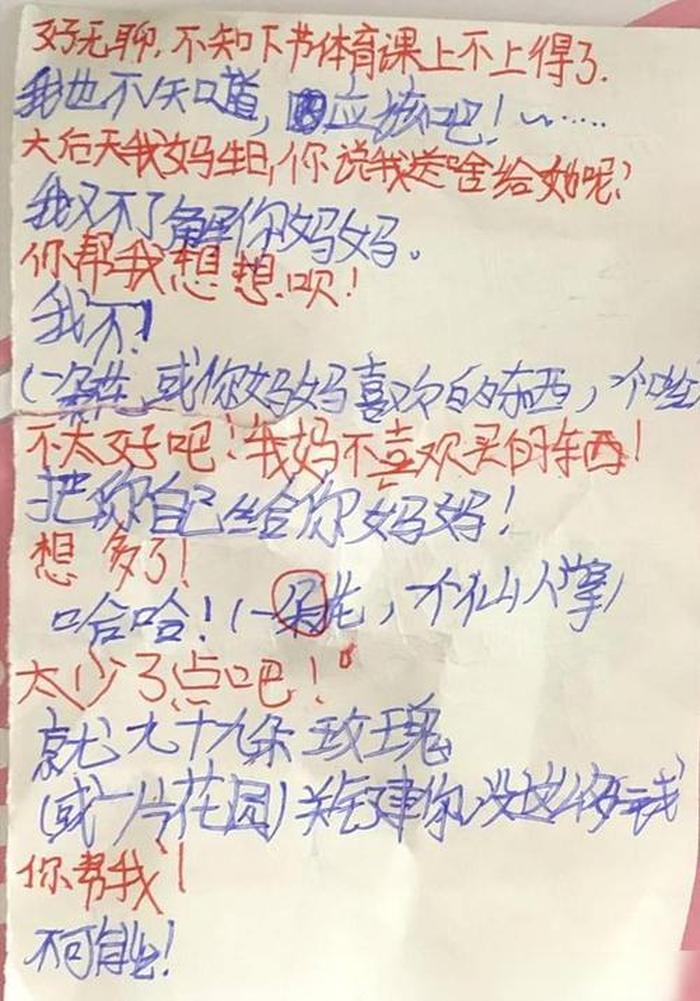 好无聊,不知下节体育课上不上得了.
我也不知道,应该吧!~……
大后天我妈生日,你说我送啥给她呢?
我又不了解你妈妈。
你帮我想想呗!
我不!
(一朵花,或你妈妈喜欢的东西,
不太好吧!我妈不喜欢买的东西!
把你自己给你妈妈!
想多了!
哈哈!(一朵花,个仙人掌)
太少了点吧!
就九十九朵玫瑰
(或一片花园)关键你没这么多钱
你帮我!
不可能!